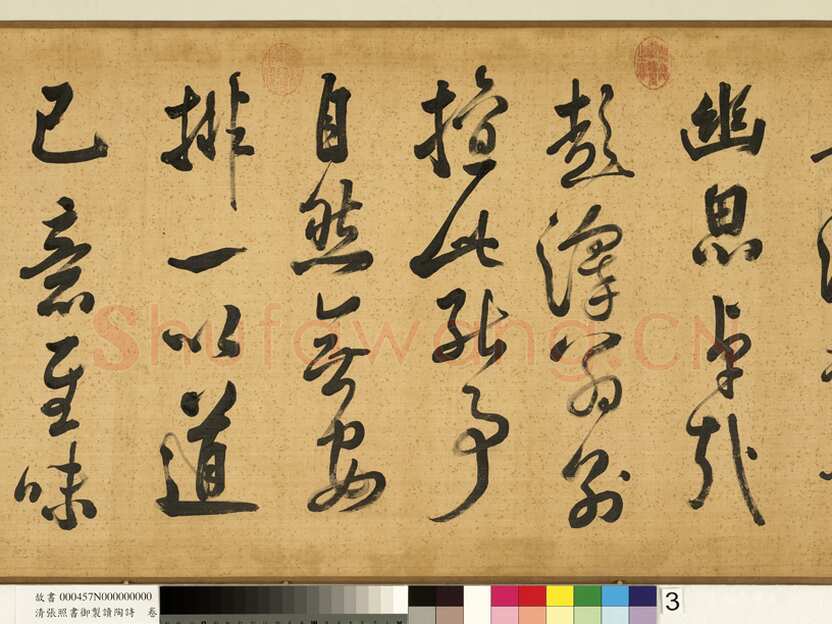 幽思卓哉
彭澤翁別
擅此能事
自然無安
排一以道
己意至味
Shufawang.CN
故書 000457N000000000
清張照書御製讀陶詩　卷
3